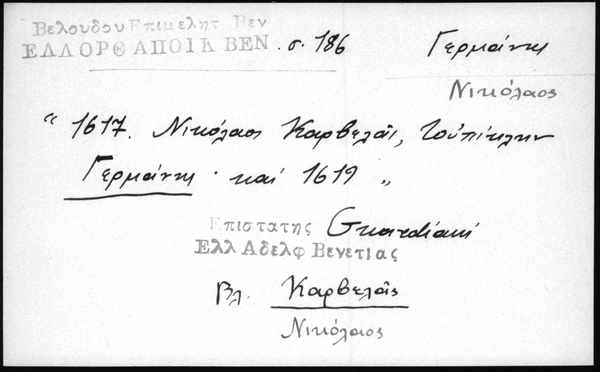 Βελουδου Επιμελητ Βεν
ΕΛΛΟΡΘ ΑΠΟΙΚ ΒΕΝ . σ. 186 Γερμάνης
Νικόλαος
“ 1617. Νικόλαος Καρβελᾶς, τοὐπίκλην
Γερμάνης · καί 1619 „
Επιστατης Guardiani
Ελλ Αδελφ Βενετιας
Βλ. Καρβελᾶς
Νικόλαος